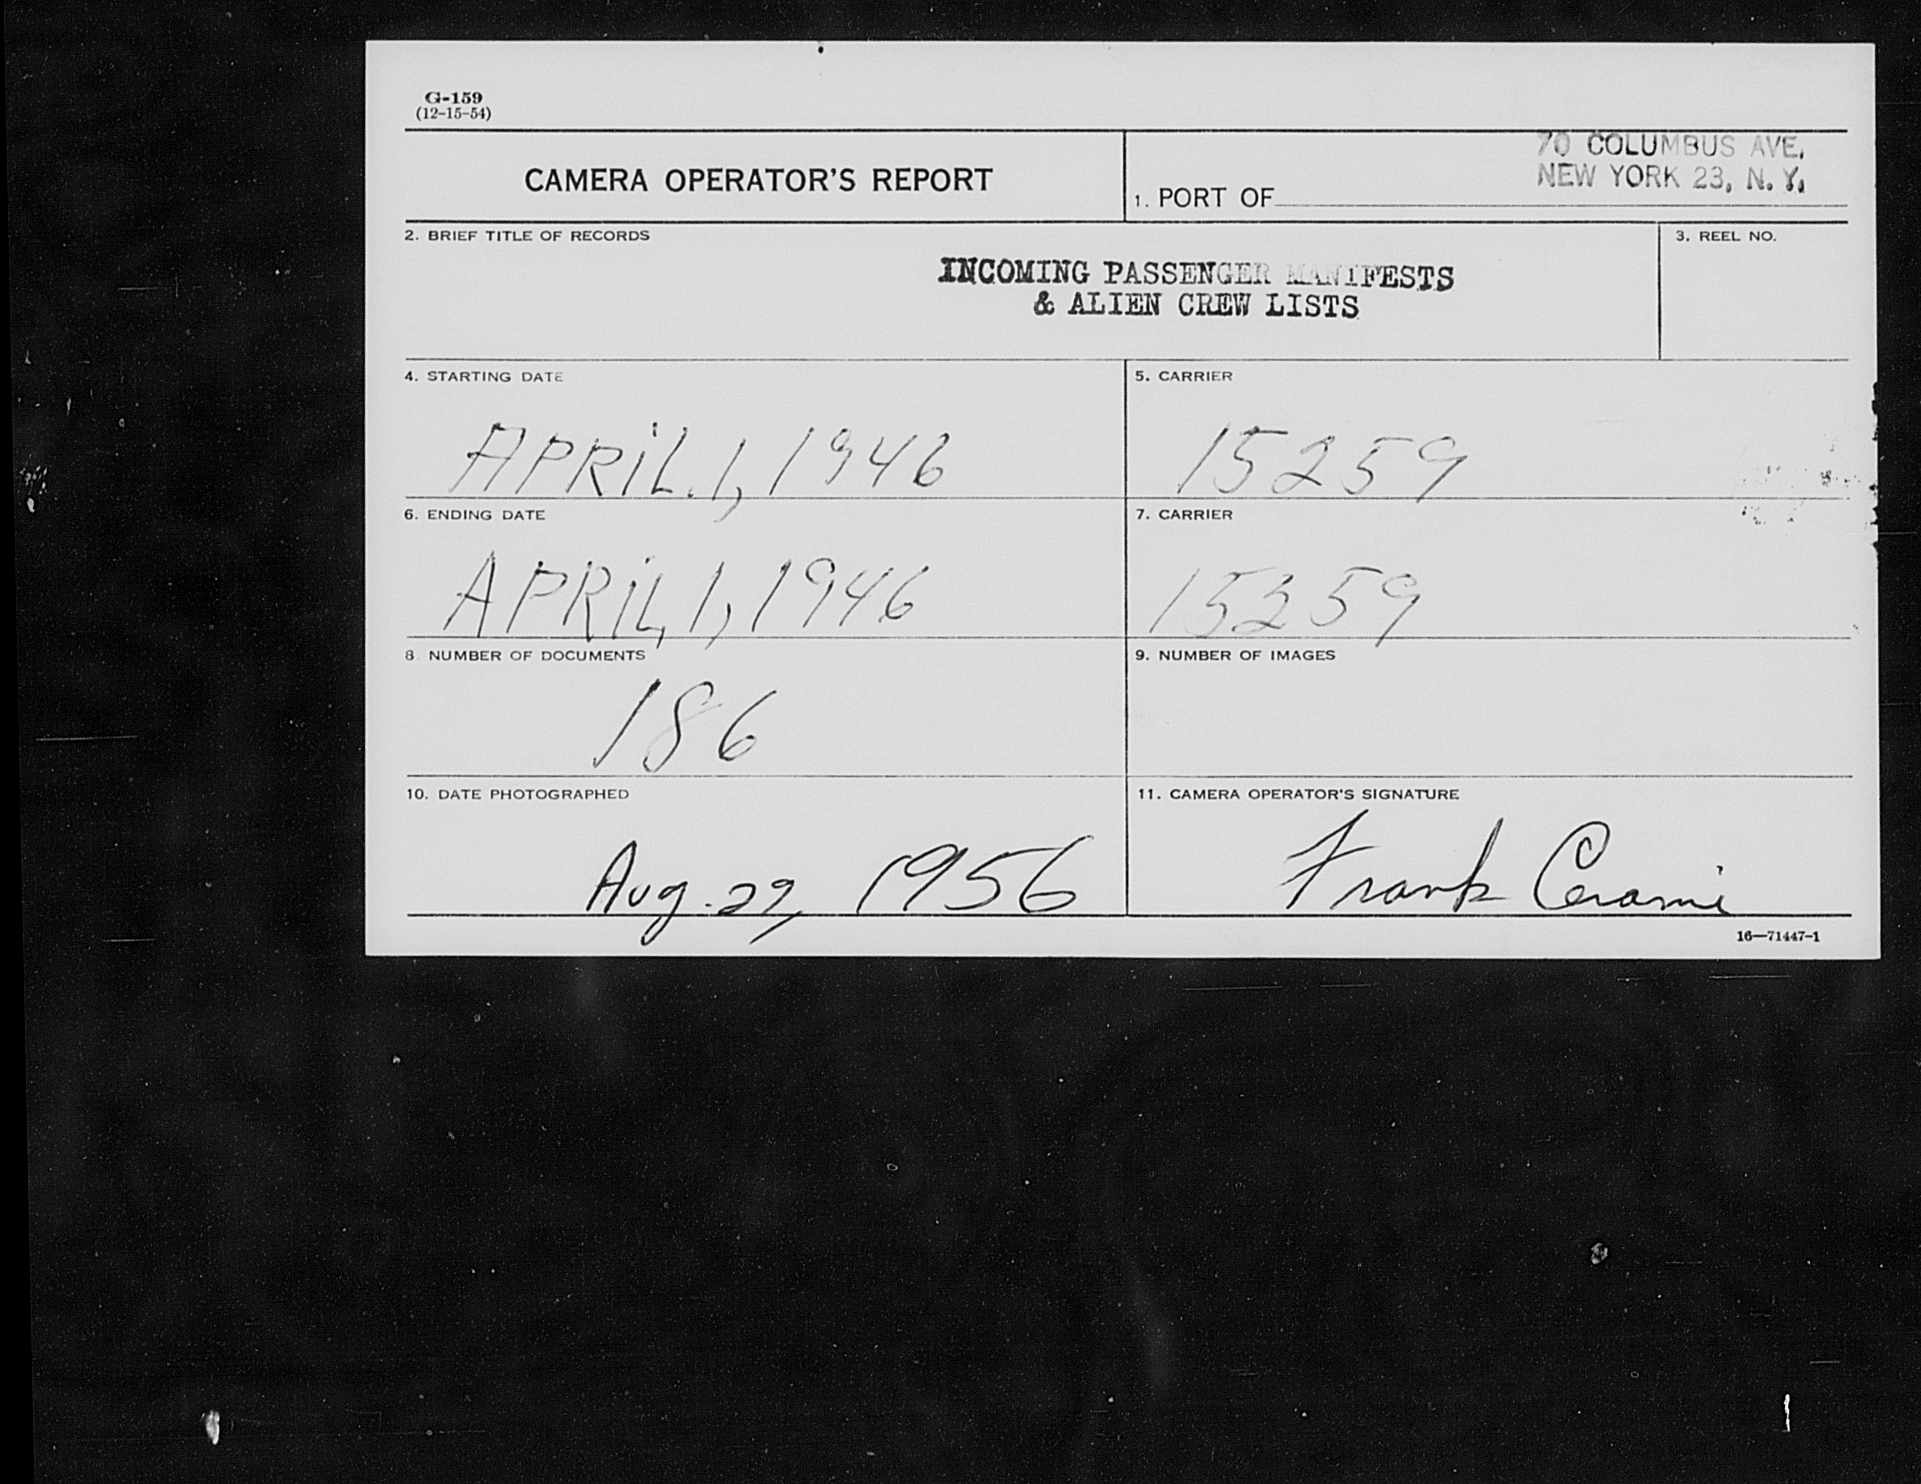 G-159
(12-15-54)
CAMERA OPERATOR'S REPORT
70 COLUMBUS AVE.
NEW YORK 23, N. Y.
1. PORT OF
2. BRIEF TITLE OF RECORDS
INCOMING PASSENGER MANIFESTS
& ALIEN CREW LISTS
3. REEL NO.
4. STARTING DATE
APRIL. 1, 1946
5. CARRIER
15259
6. ENDING DATE
APRIL, 1, 1946
7. CARRIER
8. NUMBER OF DOCUMENTS
186
9. NUMBER OF IMAGES
10. DATE PHOTOGRAPHED
Aug. 29, 1956
11. CAMERA OPERATOR'S SIGNATURE
Frank Cerami
16—71447-1